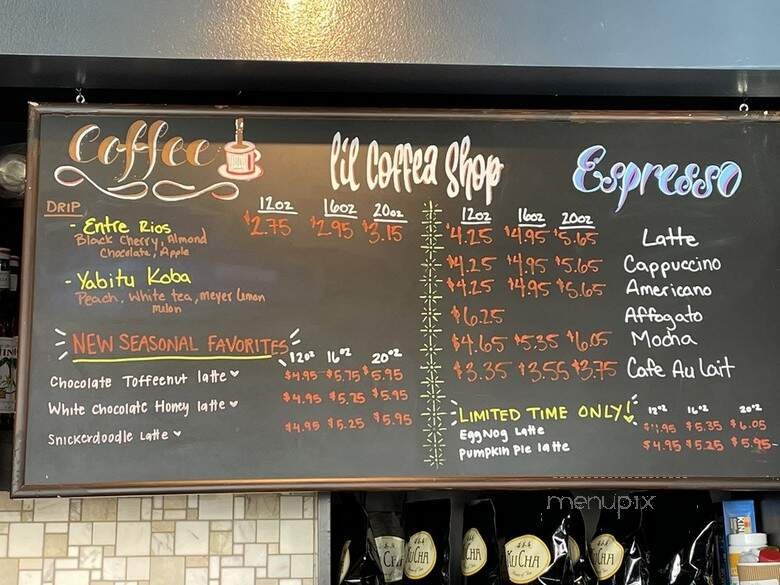 Coffee
lil Coffea Shop
Espresso
DRIP
12oz 16oz 20oz
- Entre Rios $2.75 $2.95 $3.15
Black Cherry, Almond
Chocolate, Apple
- Yabitu Koba
Peach, White tea, meyer lemon
melon
NEW SEASONAL FAVORITES
12oz 16oz 20oz
Chocolate Toffeenut latte $4.95 $5.75 $5.95
White chocolate Honey latte $4.95 $5.75 $5.95
Snickerdoodle Latte $4.95 $5.25 $5.95
12oz 16oz 20oz
$4.25 $4.95 $5.65 Latte
$4.25 $4.95 $5.65 Cappuccino
$4.25 $4.95 $5.65 Americano
$6.25 Affogato
$4.65 $5.35 $6.05 Mocha
$3.35 $3.55 $3.75 Cafe Au Lait
LIMITED TIME ONLY!
12oz 16oz 20oz
EggNog Latte $5.35 $6.05
Pumpkin Pie latte $4.95 $5.25 $5.95
menupix
KUCHA
CHA
KUCHA
KUCHA